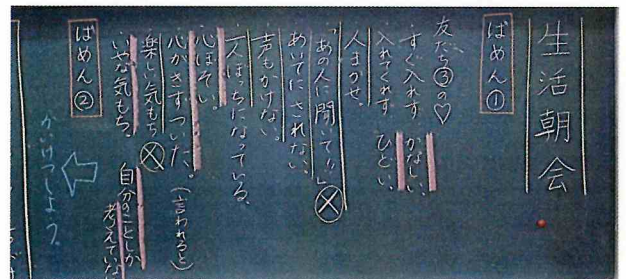 生活朝会
ばめん①
友だち③の♡
すぐ入れず かなしい。
入れてくれず ひどい。
人まかせ。
「あの人に聞いて!!」Ⓧ
あいてにされない。
声もかけない。
一人ぼっちになっている。
心ぼそい。
心がきずついた。(言われると)
楽しい気もちⓍ 自分のことしか
いやな気もち。 考えていな
ばめん②
かいけつしよう。